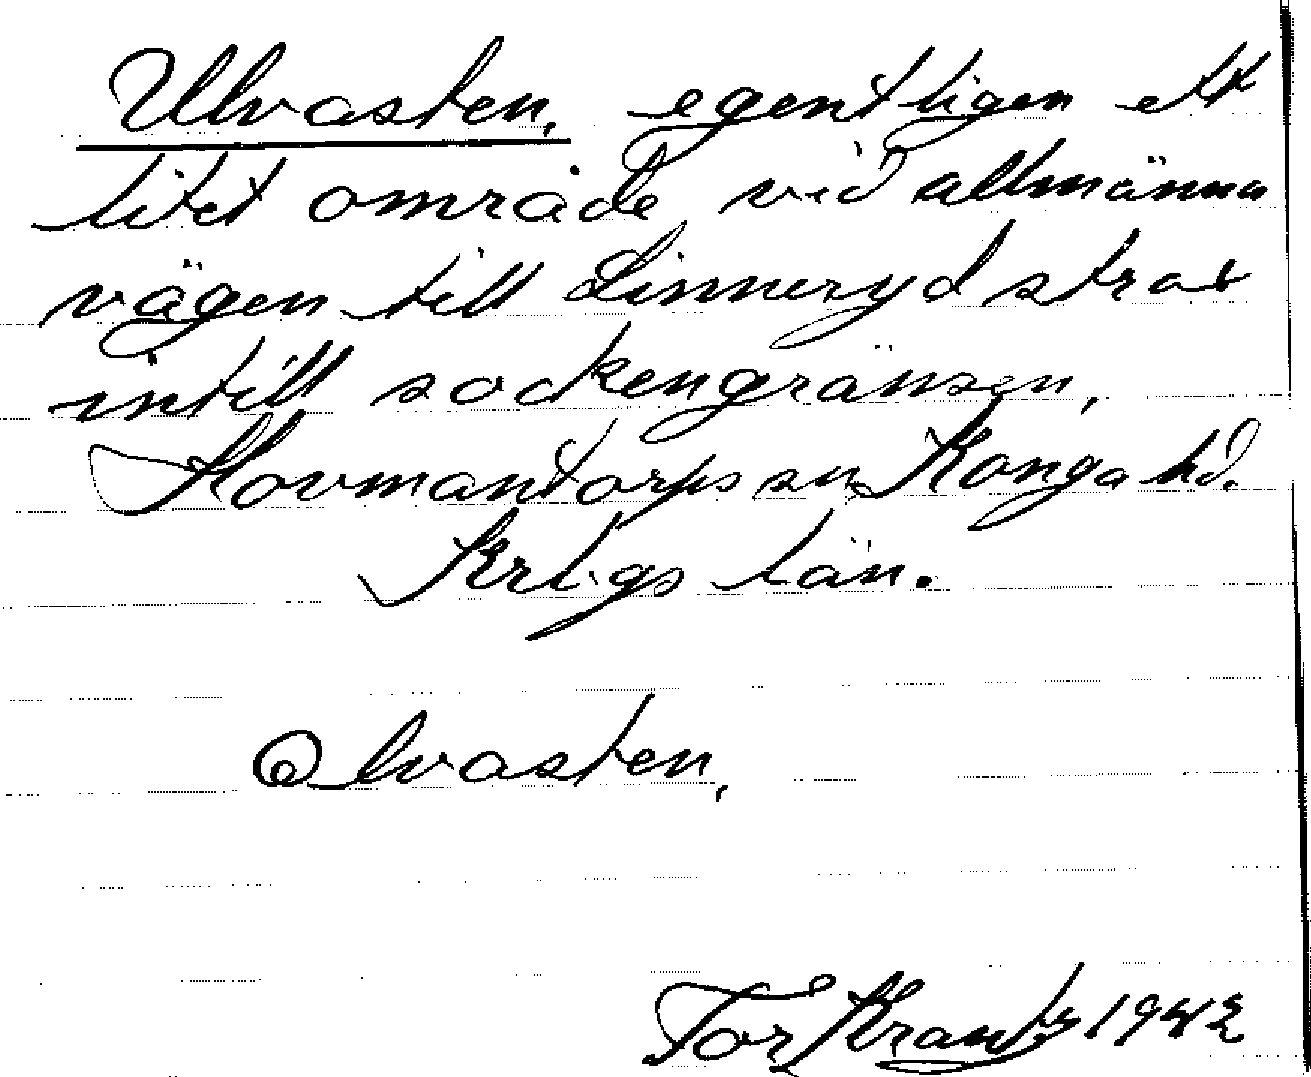 Ulvasten, egentligen ett
litet område vid allmänna
vägen till Linneryd strax
intill sockengränsen,
Hovmantorps sn, Konga hd.
Krbgs län.
Olvasten,
Tor Krantz 1942